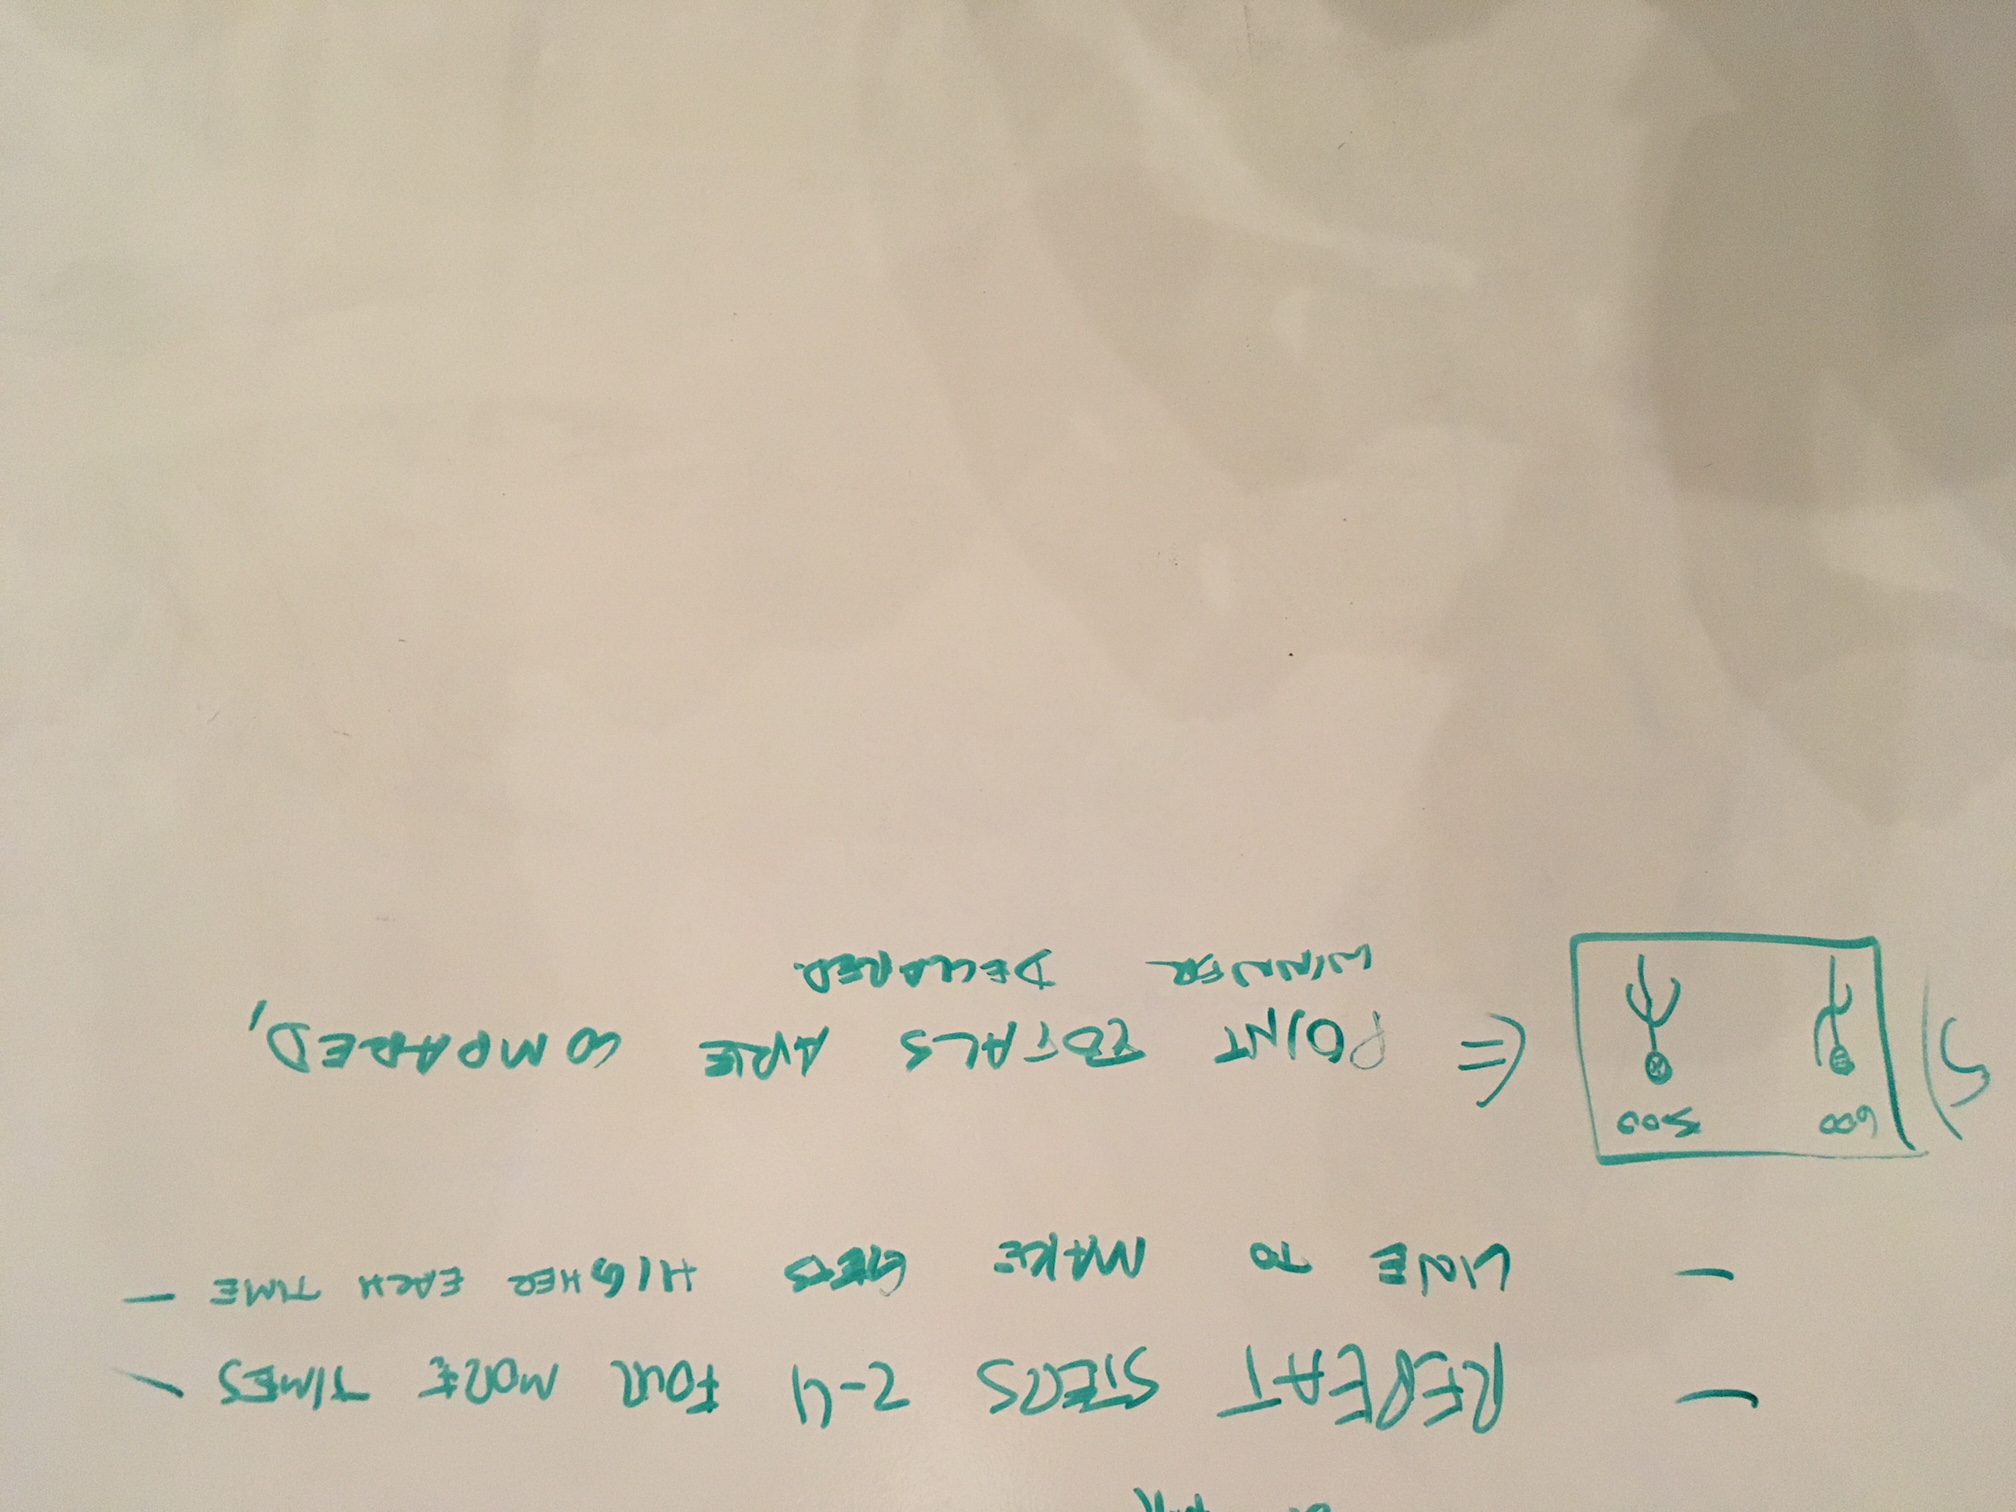 — REPEAT STEPS 2-4 FOUR MORE TIMES —
— LINE TO MAKE GETS HIGHER EACH TIME —
5)
600 500
⇐ POINT TOTALS ARE COMPARED,
WINNER DECLARED.